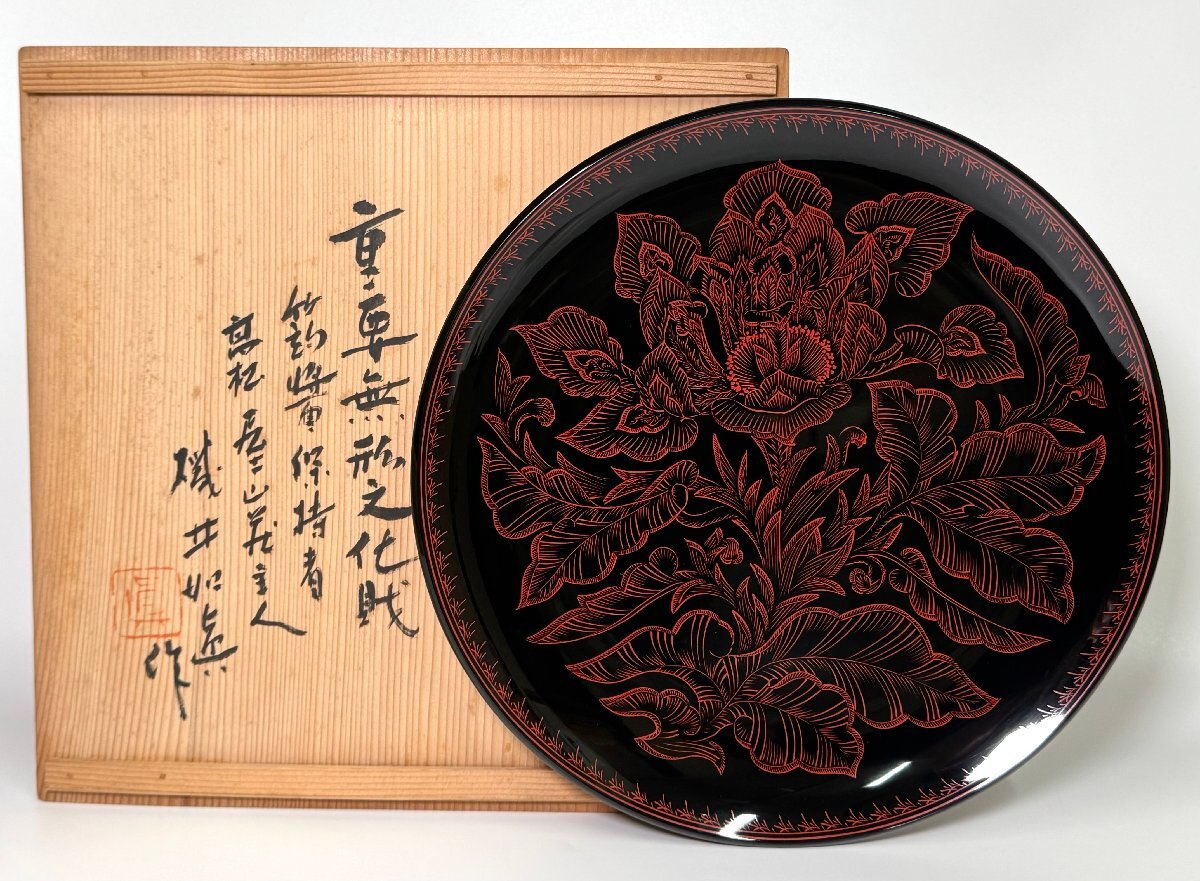 重要無形文化財
蒟醤保持者
高松 山荘主人
磯井如真
作